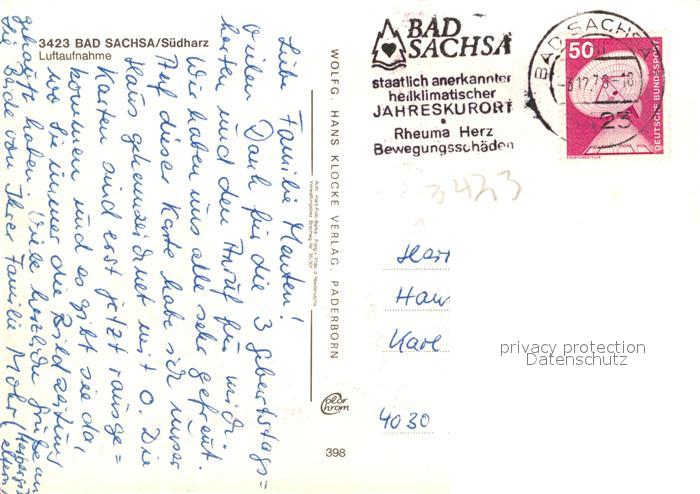 3423 BAD SACHSA/Südharz
Luftaufnahme
Liebe Familie Menten!
Vielen Dank für die 3 Geburtstags=
karten und den Anruf für mich.
Wir haben uns alle sehr gefreut.
Auf diese Karte habe sich unser
Haus gekennzeichnet mit O. Die
Karten sind erst jetzt rausge=
kommen und es gibt sie da,
wo Sie immer die Bildzeitung
gekauft haben. Viele herzliche Grüße an
Sie Beide von Ihrer Familie Mohr
WOLFG. HANS KLOCKE VERLAG, PADERBORN
color
chrom
398
BAD
SACHSA
staatlich anerkannter
heilklimatischer
JAHRESKURORT
Rheuma Herz
Bewegungsschäden
BAD SACHSA
23
50
DEUTSCHE BUNDESPOST
ERDEFUNKSTELLE
3423
Herr
Han
Karl
4030
privacy protection
Datenschutz